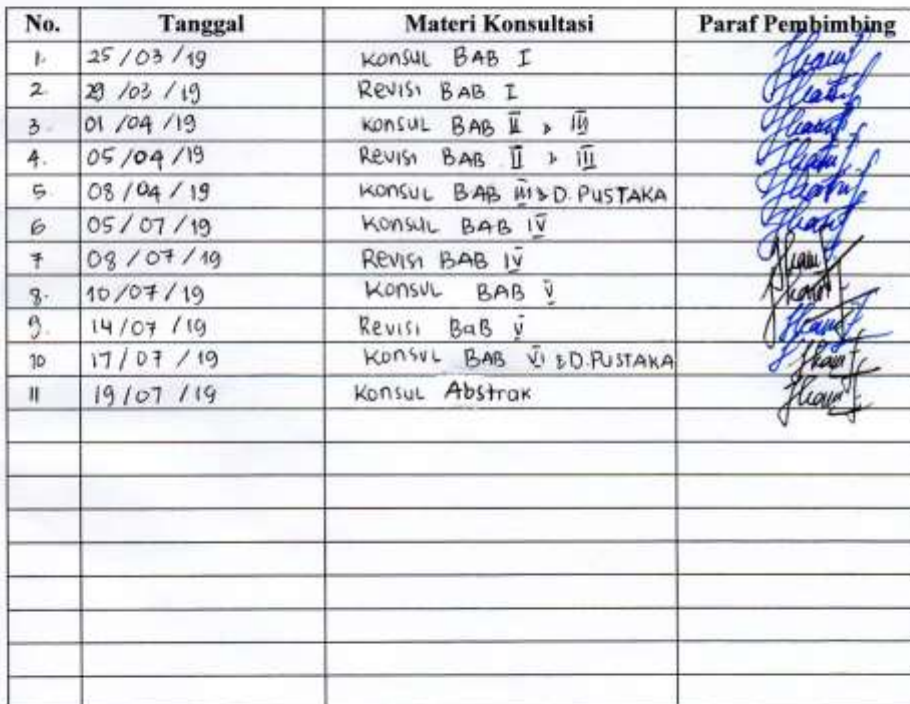 No. Tanggal Materi Konsultasi Paraf Pembimbing
1. 25/03/19 Konsul BAB I
2. 29/03/19 Revisi BAB I
3. 01/04/19 Konsul BAB II & III
4. 05/04/19 Revisi BAB II & III
5. 08/04/19 Konsul BAB III & D. PUSTAKA
6 05/07/19 Konsul BAB IV
7 08/07/19 Revisi BAB IV
8. 10/07/19 Konsul BAB V
9. 14/07/19 Revisi BaB V
10 17/07/19 Konsul BAB VI & D.PUSTAKA
11 19/07/19 Konsul Abstrak